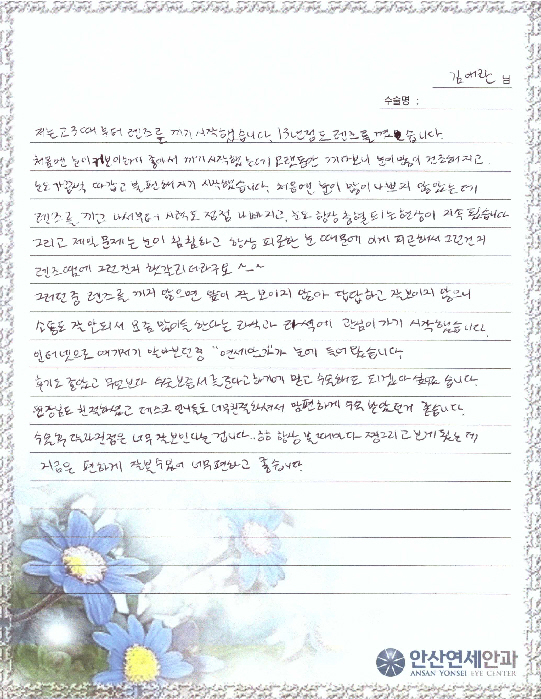 김애란 님
수술명 :
저는 고3때 부터 렌즈를 끼기 시작했습니다. 13년정도 렌즈를 꼈습니다.
처음엔 눈이 커보이는게 좋아서 끼기 시작했는데 오랫동안 끼다보니 눈이 많이 건조해지고
눈도 가끔씩 따갑고 불편해지기 시작했습니다. 처음엔 눈이 많이 나쁘지 않았는데
렌즈를 끼고 나서부터 시력도 점점 나빠지고, 눈도 항상 충혈되는 현상이 지속됬습니다
그리고 제일 문제는 눈이 침침하고 항상 피로한 눈 때문에 이게 피곤해서 그런건지
렌즈땜에 그런건지 헷갈리더라구요 ~_~
그러던중 렌즈를 끼지 않으면 앞이 잘 보이지 않아 답답하고 잘보이지 않으니
소통도 잘 안되서 요즘 많이들 한다는 라식과 라섹에 관심이 가기 시작했습니다.
인터넷으로 여기저기 알아보던중 "연세안과"가 눈에 들어왔습니다.
후기도 좋았고 무엇보다 잘한다고 하기에 믿고 수술해도 되겠다 싶었습니다.
원장님도 친절하셨고 데스크 언니들도 너무 친절하셔서 맘편하게 수술 받았던거 좋습니다.
수술후 달라진점은 너무 잘보인다는 겁니다.. 항상 볼때마다 찡그리고 보게 됬는데
지금은 편하게 잘볼수있어 너무 편하고 좋습니다.
안산연세안과
ANSAN YONSEI EYE CENTER